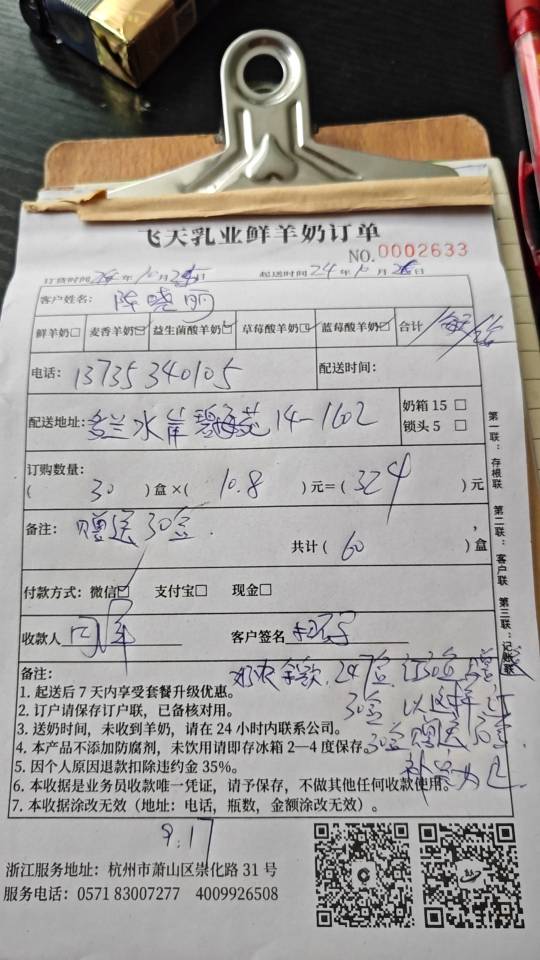 飞天乳业鲜羊奶订单
NO.0002633
订货时间 24年10月25日 起送时间 24年10月26日
客户姓名：陈晓丽
鲜羊奶□ 麦香羊奶☑ 益生菌酸羊奶☑ 草莓酸羊奶☑ 蓝莓酸羊奶☑ 合计
电话：13735340105 配送时间：
配送地址： 水岸 苑 14-1602
奶箱 15 □
锁头 5 □
订购数量：
( 30 )盒×( 10.8 )元=( 324 )元
备注：赠送30盒.
共计( 60 )盒
付款方式：微信☑ 支付宝□ 现金□
收款人 客户签名
第一联：存根联 第二联：客户联 第三联：记账联
备注：
247盒 订30盒
30盒 以这样订
30盒 赠送
1. 起送后 7 天内享受套餐升级优惠。
2. 订户请保存订户联，已备核对用。
3. 送奶时间，未收到羊奶，请在 24 小时内联系公司。
4. 本产品不添加防腐剂，未饮用请即存冰箱 2—4 度保存。
5. 因个人原因退款扣除违约金 35%。
6. 本收据是业务员收款唯一凭证，请予保存，不做其他任何收款使用。
7. 本收据涂改无效（地址：电话，瓶数，金额涂改无效）。
9.17
浙江服务地址：杭州市萧山区崇化路 31 号
服务电话：0571 83007277 4009926508